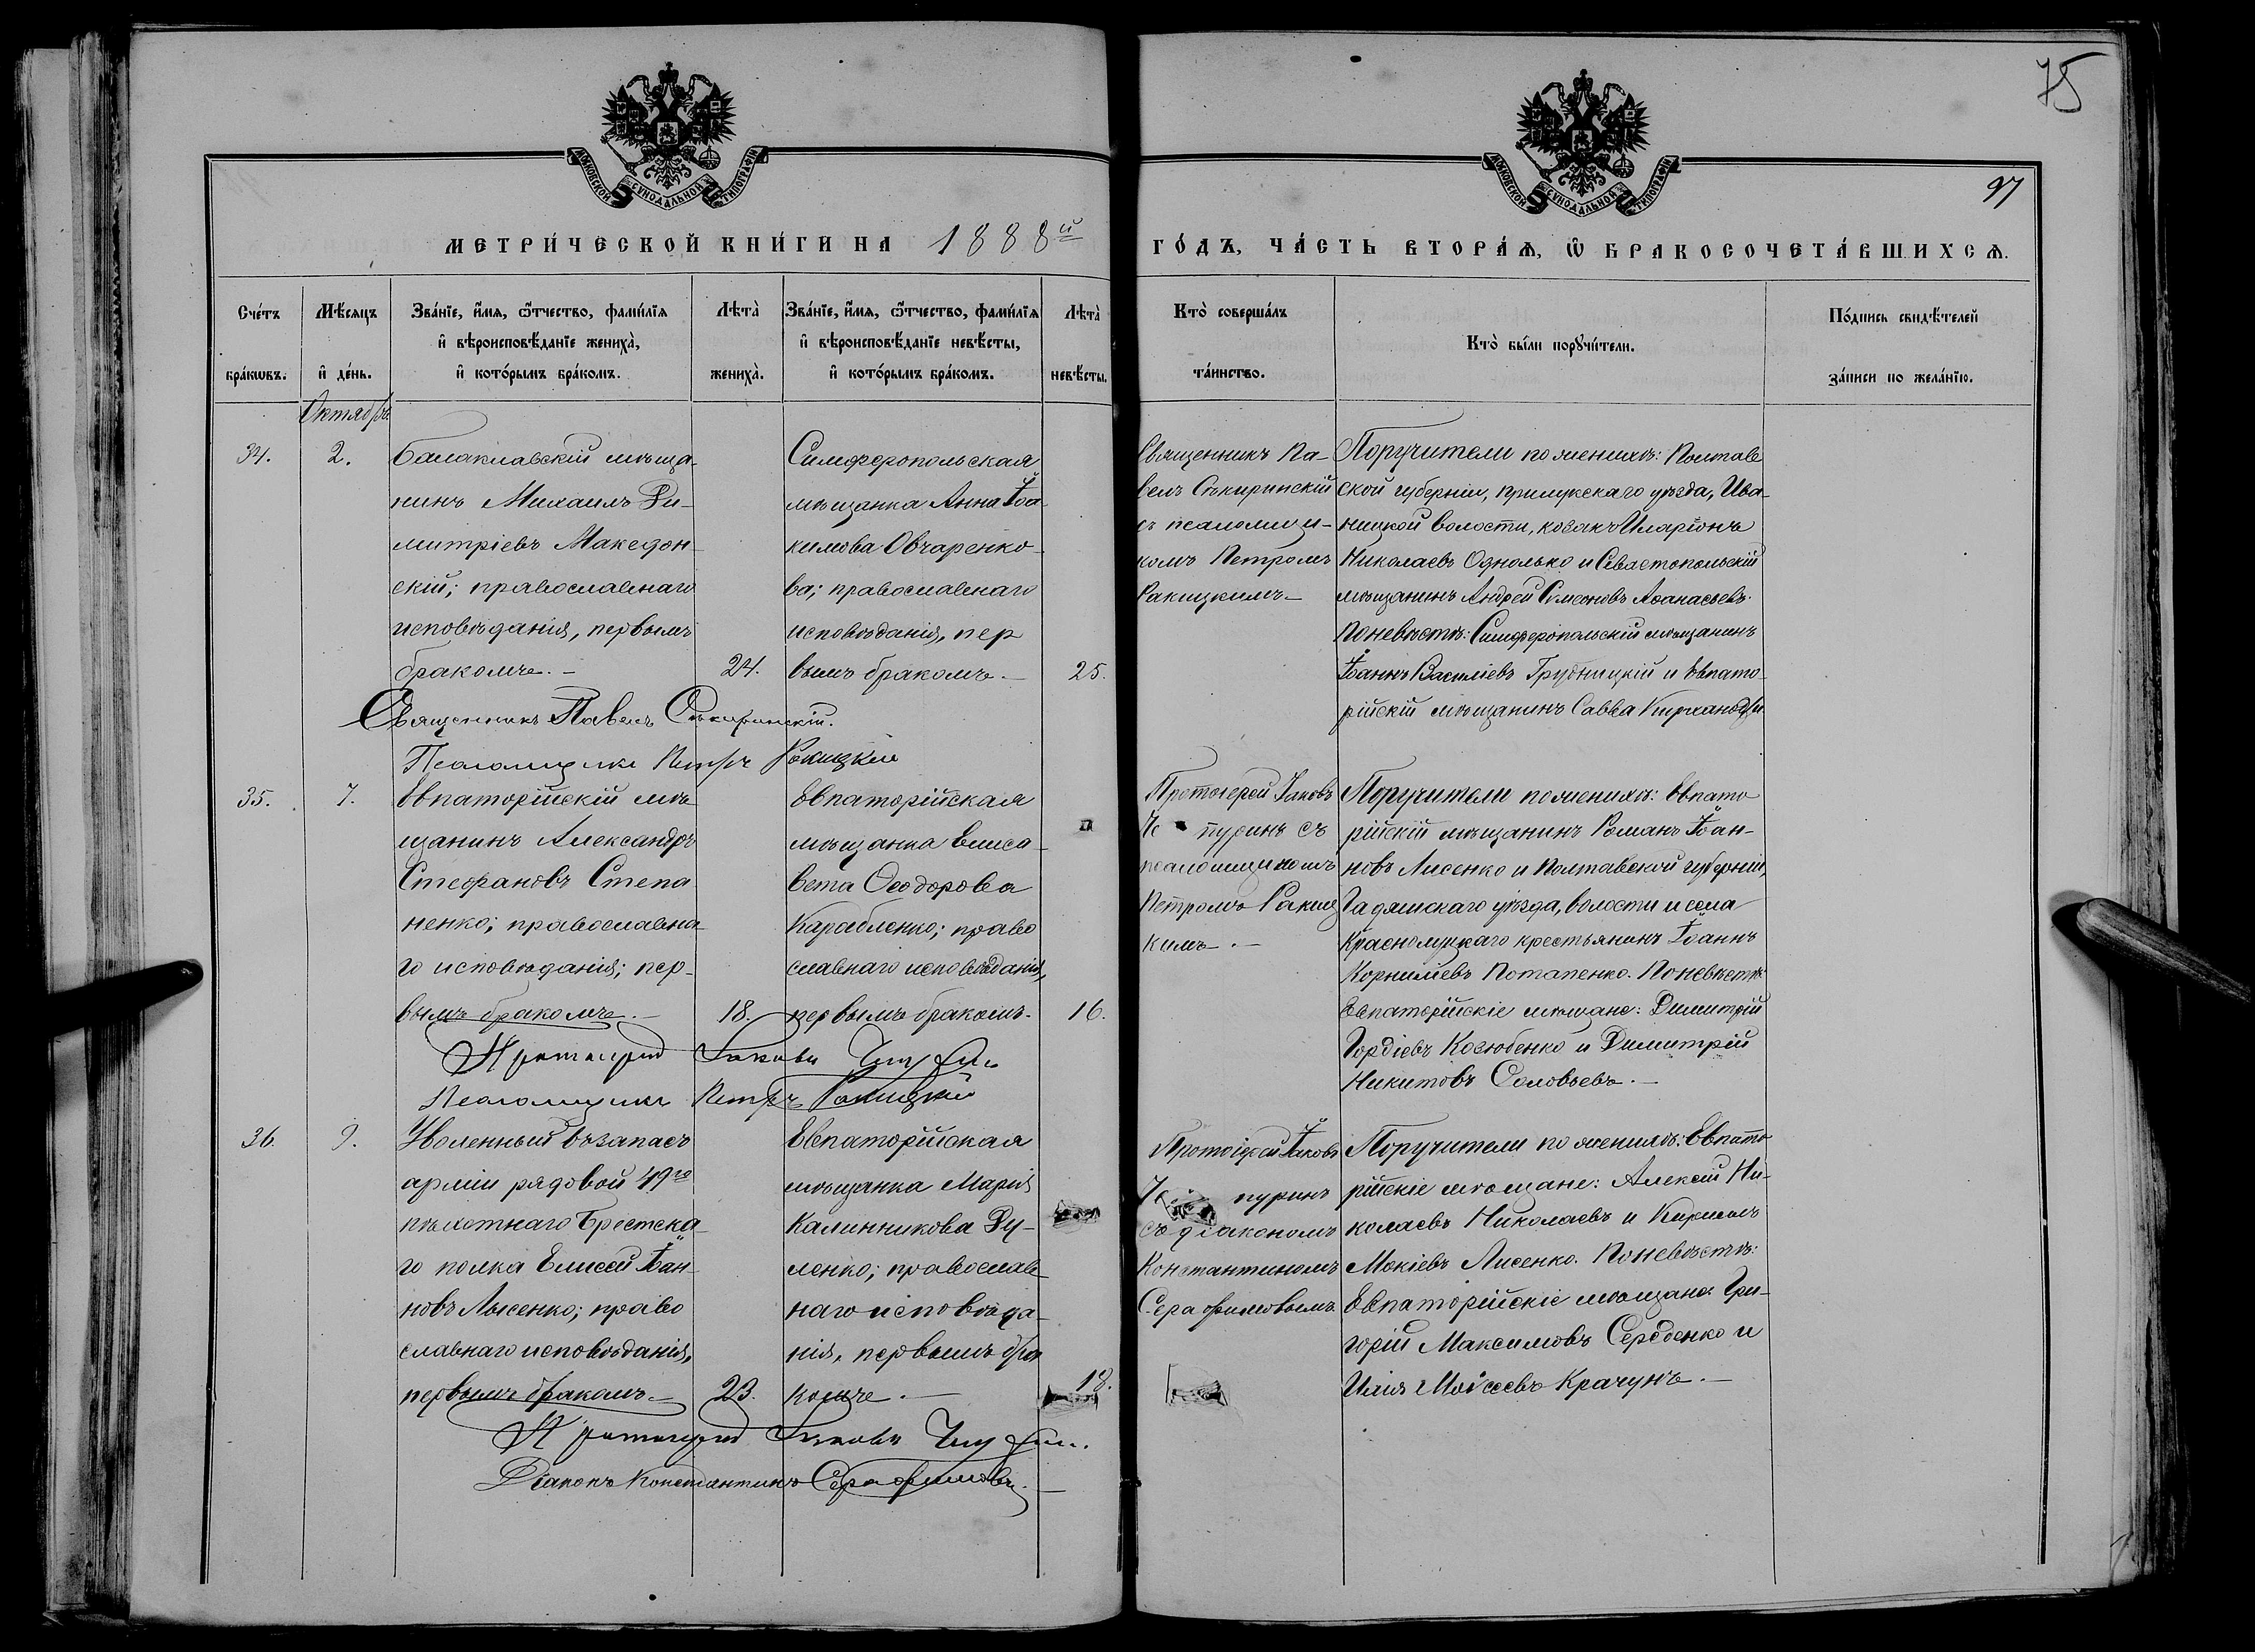 75
97
МОСКОВСКОЙ СѴНОДАЛЬНОЙ ТИПОГРАФІИ
МОСКОВСКОЙ СѴНОДАЛЬНОЙ ТИПОГРАФІИ
МЕТРИ́ЧЕСКОЙ КНИ́ГИ НА 1888й
ГО́ДЪ, ЧА́СТЬ ВТОРА́Ѧ, Ѽ БРАКОСОЧЕТА́ВШИХСѦ.
Сче́тъ бра́кѡвъ.
Мѣ́сяцъ и҆ де́нь.
Зва́нїе, и҆́мя, ѻ҆́тчество, фами́лїя
и҆ вѣроисповѣ́данїе жениха̀,
и҆ кото́рымъ бра́комъ.
Лѣта̀ жениха̀.
Зва́нїе, и҆́мя, ѻ҆́тчество, фами́лїя
и҆ вѣроисповѣ́данїе невѣ́сты,
и҆ кото́рымъ бра́комъ.
Лѣта̀ невѣ́сты.
Кто̀ соверша́лъ
та́инство.
Кто̀ бы́ли порꙋчи́тели.
По́дпись свидѣ́телей
за́писи по жела́нїю.
Октябрь
34.
2.
Балаклавскій мѣща-
нинъ Михаилъ Ди-
митріевъ Македон-
скій; православнаго
исповѣданія, первымъ
бракомъ.-
24.
Симферопольская
мѣщанка Анна Іоа-
кимова Овчаренко-
ва; православнаго
исповѣданія, пер
вымъ бракомъ.-
25.
Священникъ Па-
велъ Сѣкиринскій
съ псаломщи-
комъ Петромъ
Ракицкимъ-
Поручители по женихѣ: Полтав
ской губерніи, Прилукскаго уѣзда, Ива-
ницкой волости, козакъ Иларіонъ
Николаевъ Однолько и Севастопольскій
мѣщанинъ Андрей Симеоновъ Аѳанасьевъ.
По невѣстѣ: Симферопольскій мѣщанинъ
Іоаннъ Василіевъ Грудницкій и Евпато-
рійскій мѣщанинъ Савва
Священникъ Павелъ Сѣкиринскій.
Псаломщикъ Петръ Ракицкій
35.
7.
Евпаторійскій мѣ
щанинъ Александръ
Стефановъ Степа
ненко; православна-
го исповѣданія; пер-
вымъ бракомъ.-
18.
Евпаторійская
мѣщанка Елиса-
вета Ѳеодорова
Карабленко; право
славнаго исповѣданія,
первымъ бракомъ.
16.
Протоіерей Іаковъ
Че пуринъ съ
псаломщикомъ
Петромъ Ракиц
кимъ.-
Поручители по женихѣ: Евпато
рійскій мѣщанинъ Романъ Іоан-
новъ Лисенко и Полтавской губерніи,
Гадячскаго уѣзда, волости и села
Краснолуцкаго крестьянинъ Іоаннъ
Корниліевъ Потапенко. По невѣстѣ:
Евпаторійскіе мѣщане: Димитрій
Гордіевъ Козюбенко и Димитрій
Никитовъ Соловьевъ.-
Протоіерей Іаковъ Чепуринъ
Псаломщикъ Петръ Ракицкій
36.
9.
Уволенный въ запасъ
арміи рядовой 49го
пѣхотнаго Брестска-
го полка Елисей Іоан-
новъ Лысенко; право
славнаго исповѣданія,
первымъ бракомъ-
23.
Евпаторійская
мѣщанка Марія
Калинникова Ру-
ленко; православ-
наго исповѣда-
нія, первымъ бра
комъ.-
18.
Протоіерей Іаковъ
Че пуринъ
съ діакономъ
Константиномъ
Серафимовымъ
Поручители по женихѣ: Евпато
рійскіе мѣщане: Алексій Ни-
колаевъ Николаевъ и Кириллъ
Мокіевъ Лисенко. По невѣстѣ:
Евпаторійскіе мѣщане Гри-
горій Максимовъ Середенко и
Илія Моѵсеевъ Крачунъ.-
Протоіерей Іаковъ Чепуринъ.
Діаконъ Константинъ Серафимовъ.-